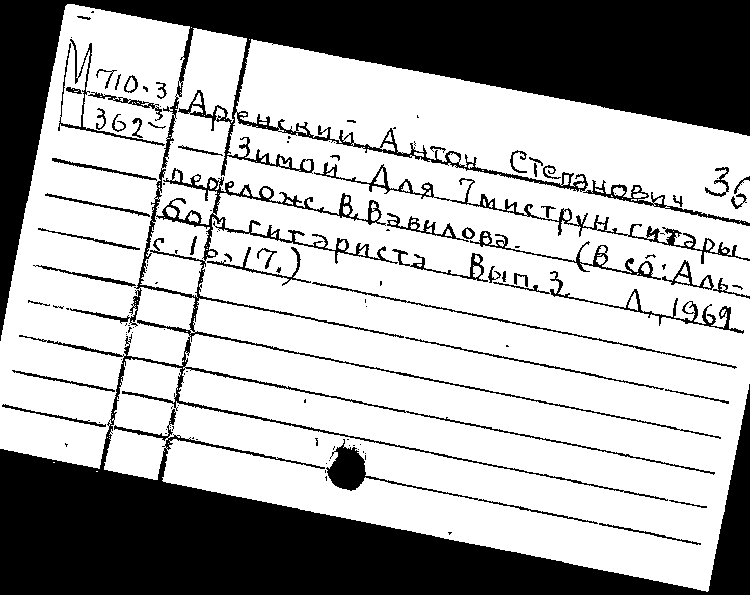 М 710.3
362³
36
Аренский, Антон Степанович
Зимой. Для 7миструн. гитары
перелож. В. Вавилова. (В сб: Аль-
бом гитариста. Вып. 3. Л., 1969
с. 16, 17.)